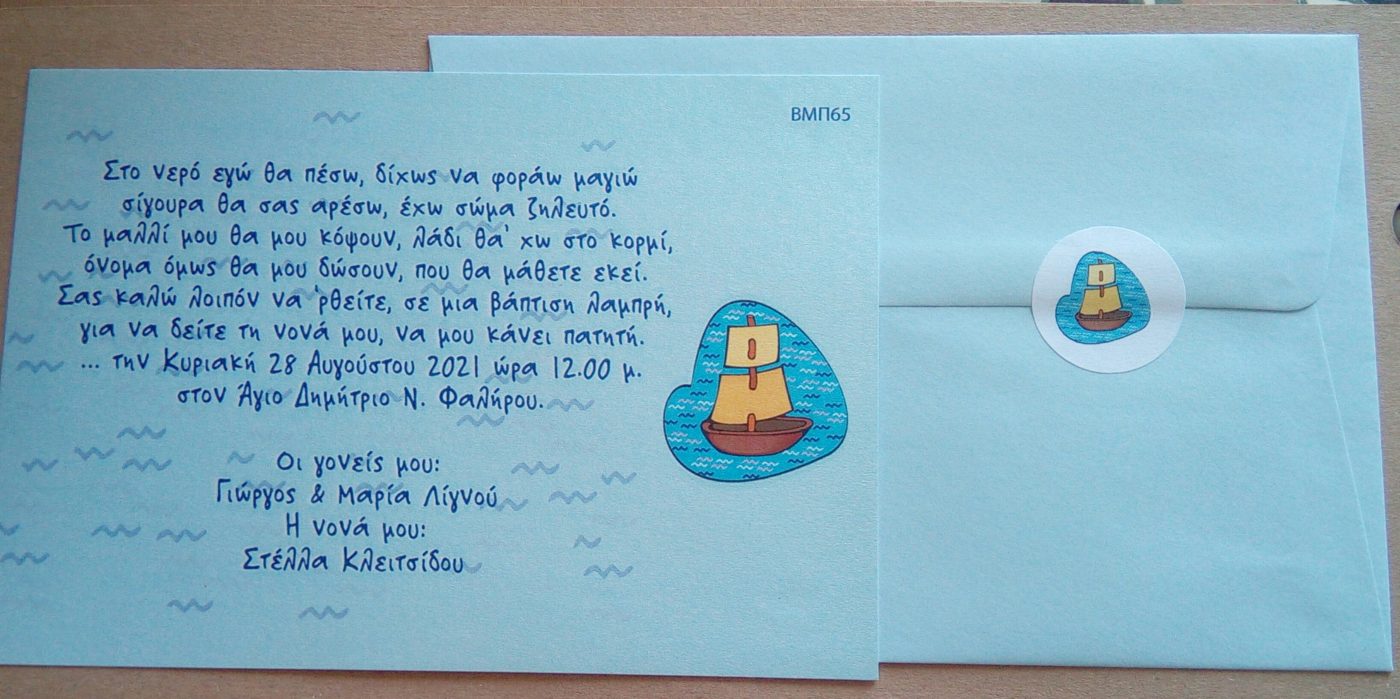 ΒΜΠ65
Στο νερό εγώ θα πέσω, δίχως να φοράω μαγιώ
σίγουρα θα σας αρέσω, έχω σώμα ζηλευτό.
Το μαλλί μου θα μου κόψουν, λάδι θα' χω στο κορμί,
όνομα όμως θα μου δώσουν, που θα μάθετε εκεί.
Σας καλώ λοιπόν να 'ρθείτε, σε μια βάπτιση λαμπρή,
για να δείτε τη νονά μου, να μου κάνει πατητή.
... την Κυριακή 28 Αυγούστου 2021 ώρα 12.00 μ.
στον Άγιο Δημήτριο Ν. Φαλήρου.
Οι γονείς μου:
Γιώργος & Μαρία Λίγνού
Η νονά μου:
Στέλλα Κλειτσίδου